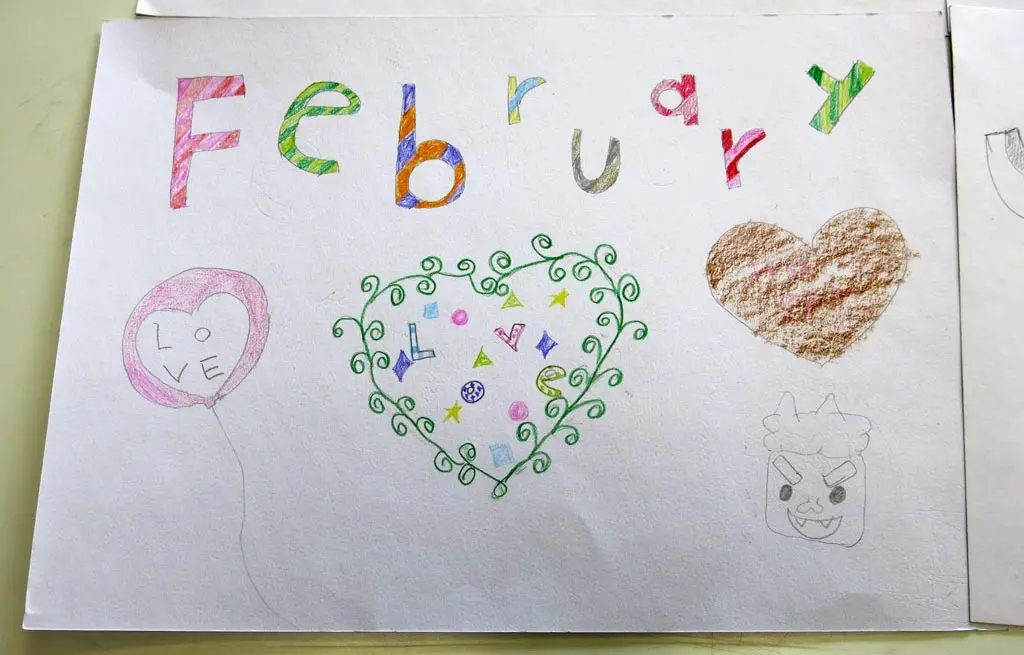 February
LO
VE
Love